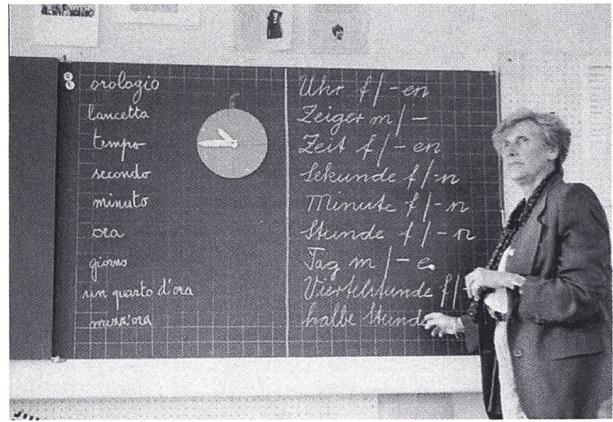 orologio
lancetta
tempo
secondo
minuto
ora
giorno
un quarto d'ora
mezz'ora
Uhr f/-en
Zeiger m/-
Zeit f/-en
Sekunde f/-n
Minute f/-n
Stunde f/-n
Tag m/-e
Viertelstunde f/-
halbe Stunde